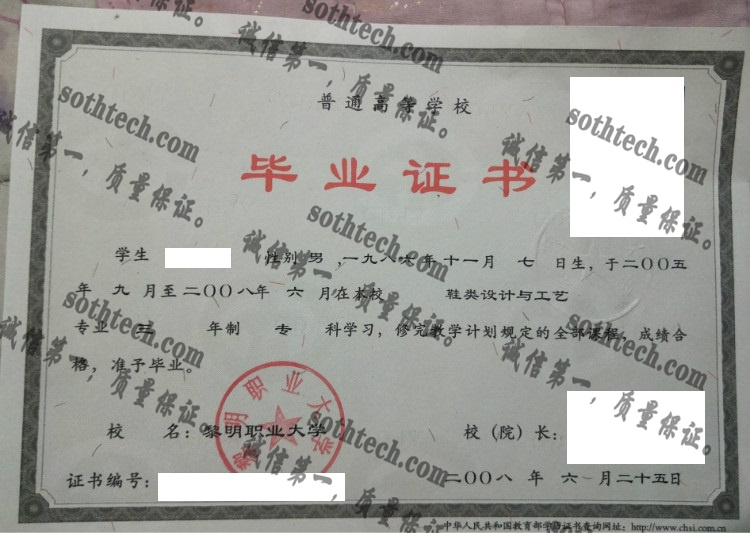 普通高等学校
毕业证书
学生 性别 男 ,一九八六年 十一月 七 日生，于二〇〇五
年 九 月至二〇〇八年 六 月在本校 鞋类设计与工艺
专业 三 年制 专 科学习，修完教学计划规定的全部课程，成绩合
格，准予毕业。
校 名：黎明职业大学
校（院）长：
证书编号：
二〇〇八 年 六 月二十五日
中华人民共和国教育部学历证书查询网址：http://www.chsi.com.cn
黎明职业大学
sothtech.com
诚信第一，质量保证。
sothtech.com
诚信第一，质量保证。
sothtech.com
诚信第一，质量保证。
sothtech.com
诚信第一，质量保证。
sothtech.com
诚信第一，质量保证。
sothtech.com
诚信第一，质量保证。
sothtech.com
诚信第一，质量保证。